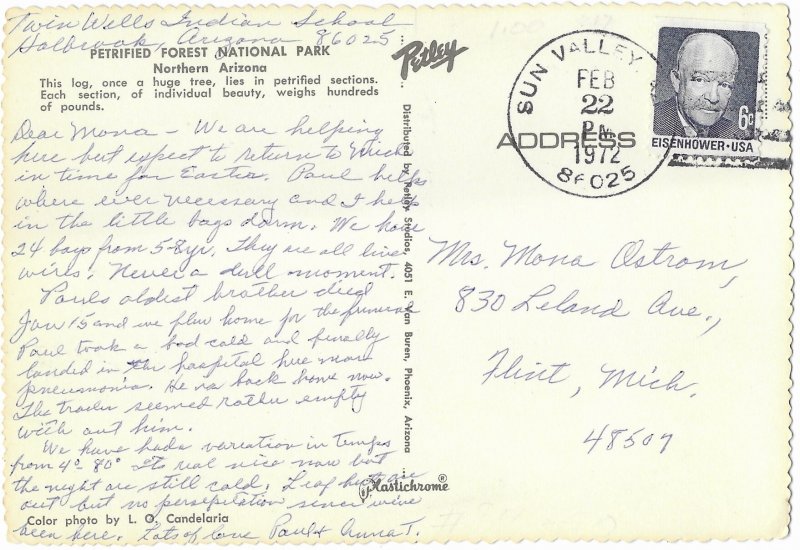 Twin Wells Indian School
Holbrook, Arizona 86025
PETRIFIED FOREST NATIONAL PARK
Northern Arizona
This log, once a huge tree, lies in petrified sections.
Each section, of individual beauty, weighs hundreds
of pounds.
Dear Mona - We are helping
here but expect to return to Mich
in time for Easter. Paul helps
where ever necessary and I help
in the little boys dorm. We have
24 boys from 5-8yr. They are all live
wires. Never a dull moment.
Pauls oldest brother died
Jan 15 and we flew home for the funeral
Paul took a bad cold and finally
landed in the hospital here more
pneumonia. He is back home now.
The trailer seemed rather empty
with out him.
We have had a variation in temps
from 4°- 80° Its real nice now but
the night are still cold. Leaf buds are
out but no persepitation since we've
been here. Lots of love Paul & Anna T.
Color photo by L. O. Candelaria
Petley
Distributed by Petley Studios, 4051 E. Van Buren, Phoenix, Arizona
Plastichrome®
SUN VALLEY
FEB
22
PM
1972
86025
ADDRESS
6c
EISENHOWER·USA
Mrs. Mona Ostrom,
830 Leland Ave.,
Flint, Mich.
48507